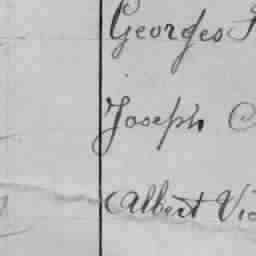 Georges
Joseph
Albert